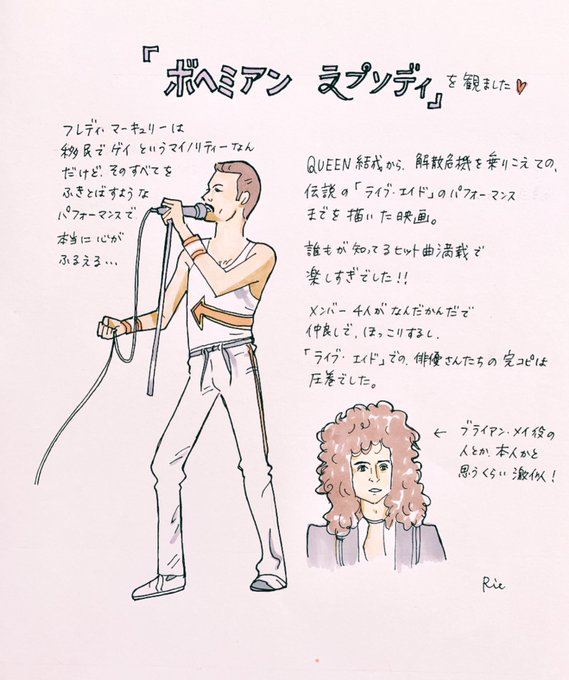 『ボヘミアン ラプソディ』を観ました♥
フレディ・マーキュリーは
移民でゲイというマイノリティーなん
だけど、そのすべてを
ふきとばすような
パフォーマンスで
本当に心が
ふるえる…
QUEEN結成から、解散危機を乗りこえての、
伝説の「ライブ・エイド」のパフォーマンス
までを描いた映画。
誰もが知ってるヒット曲満載で
楽しすぎでした!!
メンバー4人がなんだかんだで
仲良しで、ほっこりするし、
「ライブ・エイド」での、俳優さんたちの完コピは
圧巻でした。
← ブライアン・メイ役の
人とか、本人かと
思うくらい激似!
Rie